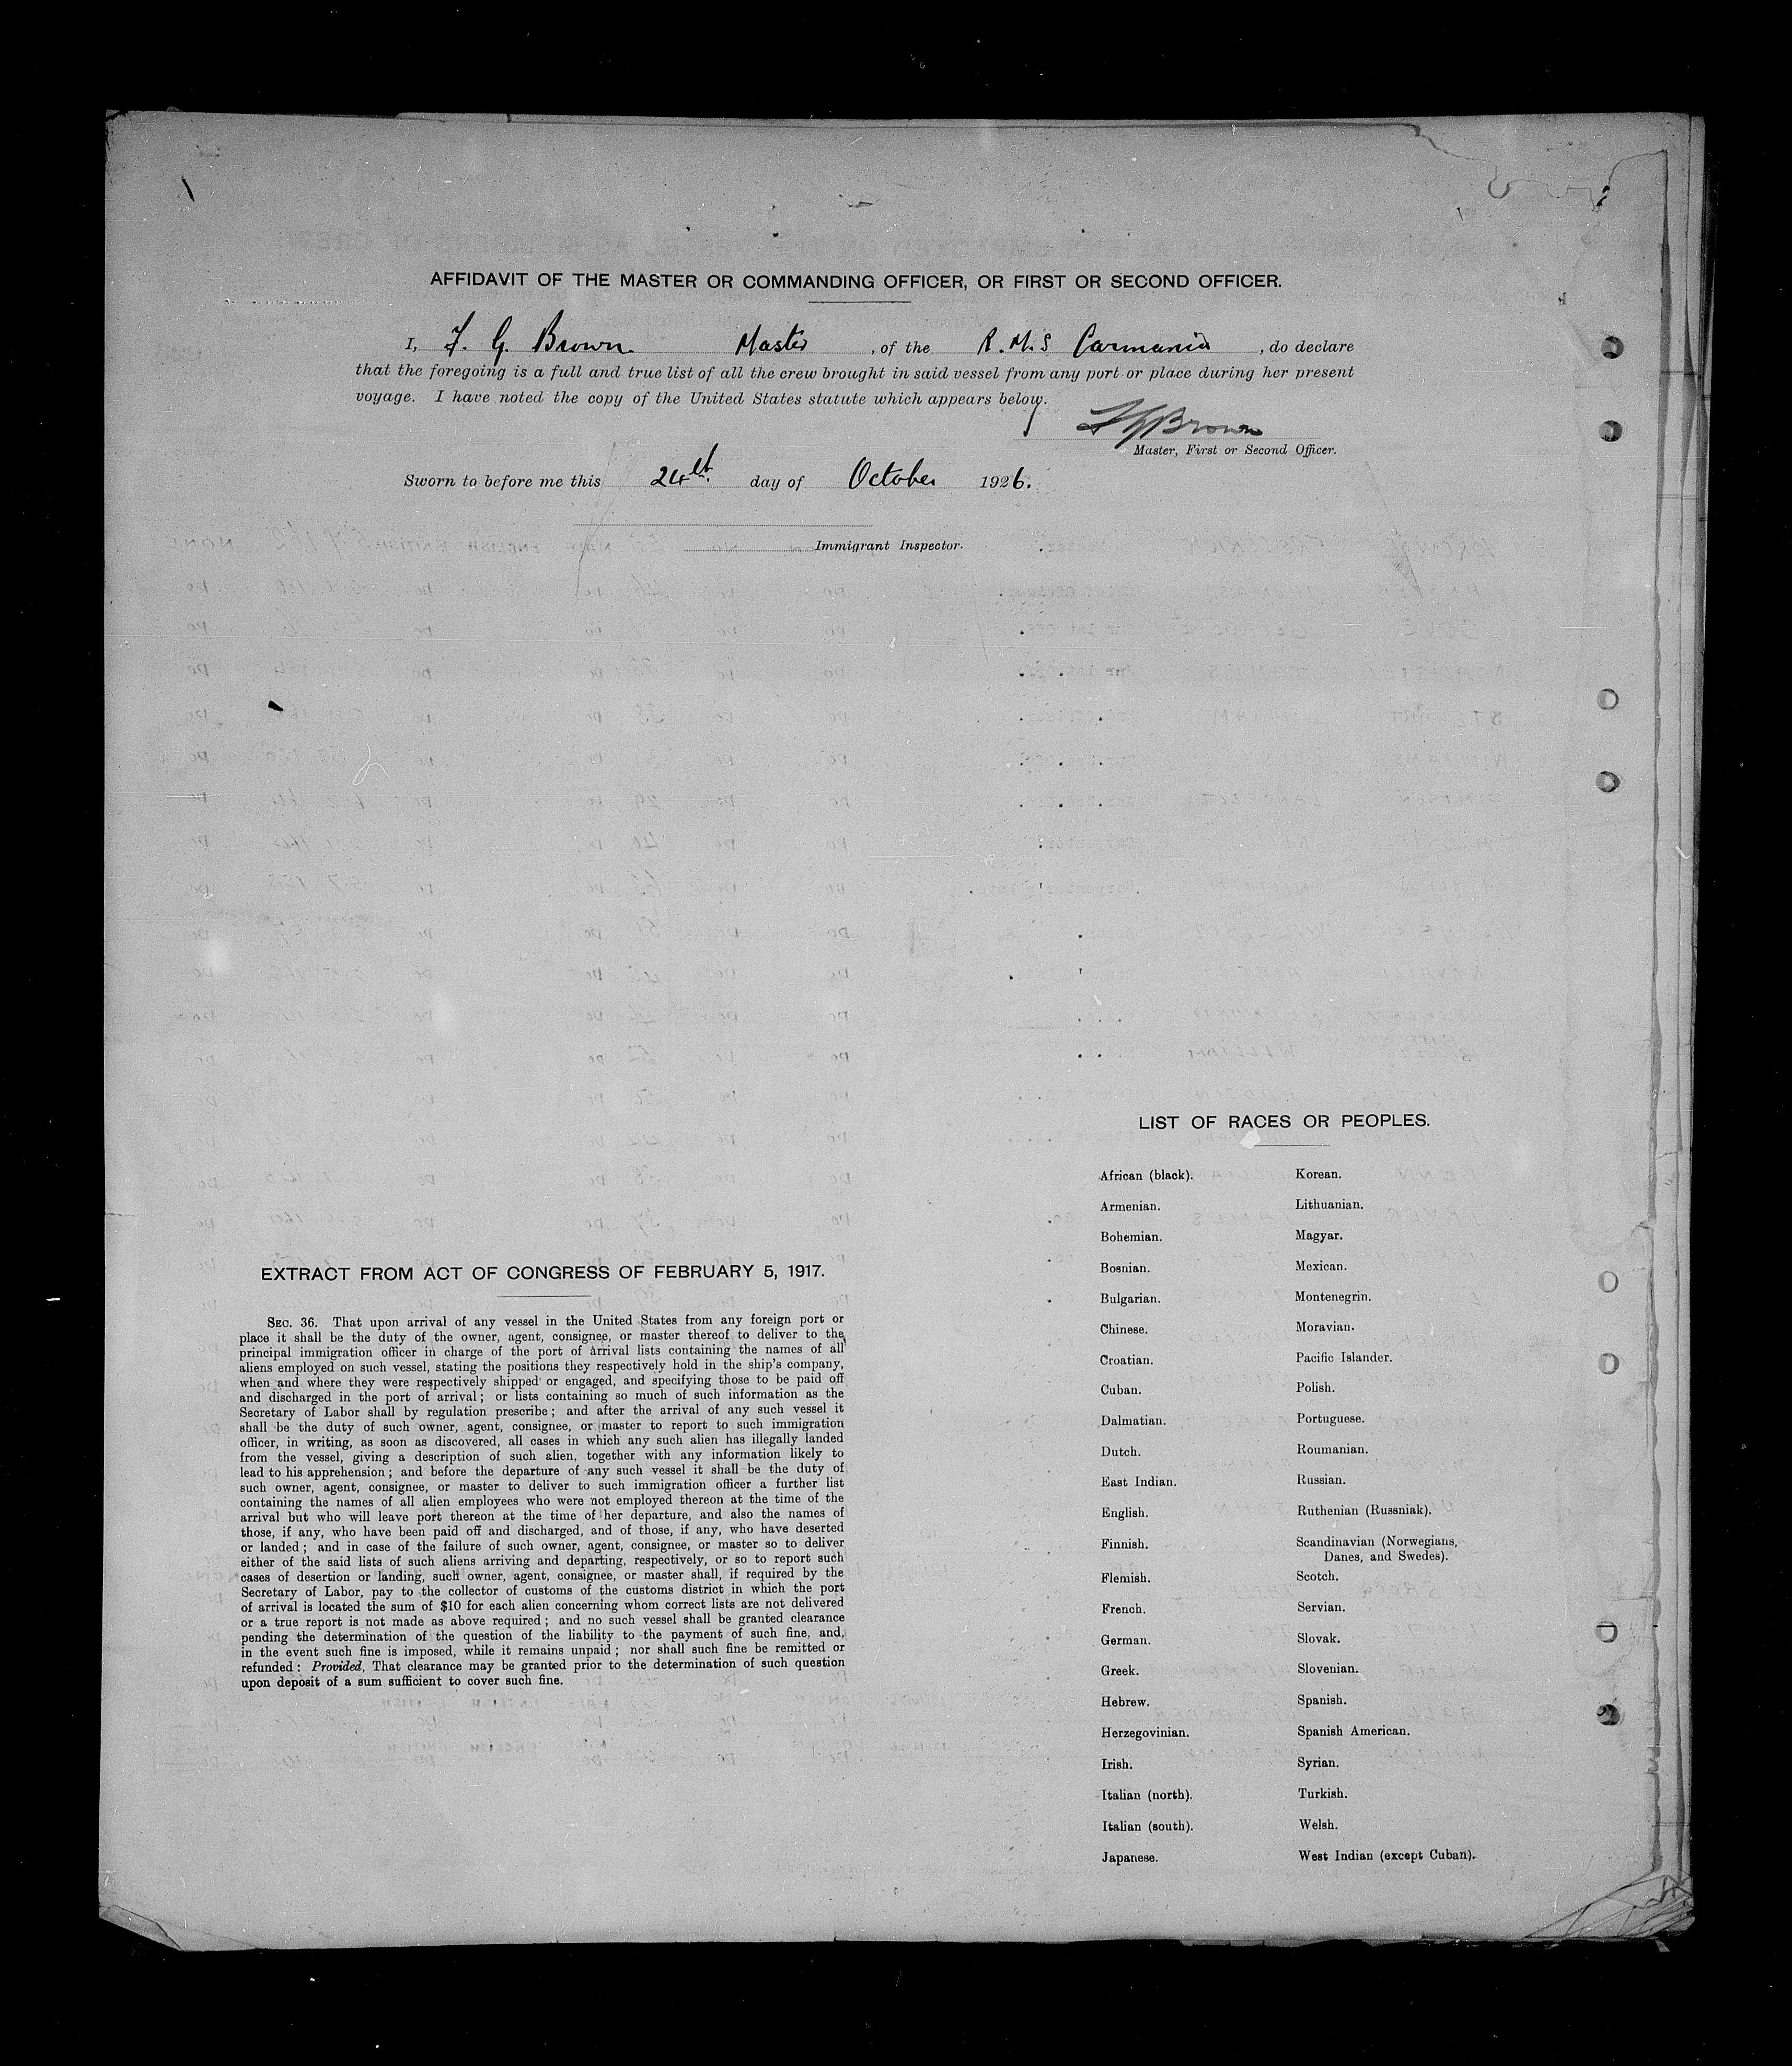 AFFIDAVIT OF THE MASTER OR COMMANDING OFFICER, OR FIRST OR SECOND OFFICER.
I, F. G. Brown Master, of the R.M.S Carmania, do declare
that the foregoing is a full and true list of all the crew brought in said vessel from any port or place during her present
voyage. I have noted the copy of the United States statute which appears below.
F G Brown
Master, First or Second Officer.
Sworn to before me this 24th day of October 1926.
Immigrant Inspector.
EXTRACT FROM ACT OF CONGRESS OF FEBRUARY 5, 1917.
SEC. 36. That upon arrival of any vessel in the United States from any foreign port or
place it shall be the duty of the owner, agent, consignee, or master thereof to deliver to the
principal immigration officer in charge of the port of arrival lists containing the names of all
aliens employed on such vessel, stating the positions they respectively hold in the ship's company,
when and where they were respectively shipped or engaged, and specifying those to be paid off
and discharged in the port of arrival; or lists containing so much of such information as the
Secretary of Labor shall by regulation prescribe; and after the arrival of any such vessel it
shall be the duty of such owner, agent, consignee, or master to report to such immigration
officer, in writing, as soon as discovered, all cases in which any such alien has illegally landed
from the vessel, giving a description of such alien, together with any information likely to
lead to his apprehension; and before the departure of any such vessel it shall be the duty of
such owner, agent, consignee, or master to deliver to such immigration officer a further list
containing the names of all alien employees who were not employed thereon at the time of the
arrival but who will leave port thereon at the time of her departure, and also the names of
those, if any, who have been paid off and discharged, and of those, if any, who have deserted
or landed; and in case of the failure of such owner, agent, consignee, or master so to deliver
either of the said lists of such aliens arriving and departing, respectively, or so to report such
cases of desertion or landing, such owner, agent, consignee, or master shall, if required by the
Secretary of Labor, pay to the collector of customs of the customs district in which the port
of arrival is located the sum of $10 for each alien concerning whom correct lists are not delivered
or a true report is not made as above required; and no such vessel shall be granted clearance
pending the determination of the question of the liability to the payment of such fine, and,
in the event such fine is imposed, while it remains unpaid; nor shall such fine be remitted or
refunded: Provided, That clearance may be granted prior to the determination of such question
upon deposit of a sum sufficient to cover such fine.
LIST OF RACES OR PEOPLES.
African (black).
Armenian.
Bohemian.
Bosnian.
Bulgarian.
Chinese.
Croatian.
Cuban.
Dalmatian.
Dutch.
East Indian.
English.
Finnish.
Flemish.
French.
German.
Greek.
Hebrew.
Herzegovinian.
Irish.
Italian (north).
Italian (south).
Japanese.
Korean.
Lithuanian.
Magyar.
Mexican.
Montenegrin.
Moravian.
Pacific Islander.
Polish.
Portuguese.
Roumanian.
Russian.
Ruthenian (Russniak).
Scandinavian (Norwegians,
Danes, and Swedes).
Scotch.
Servian.
Slovak.
Slovenian.
Spanish.
Spanish American.
Syrian.
Turkish.
Welsh.
West Indian (except Cuban).